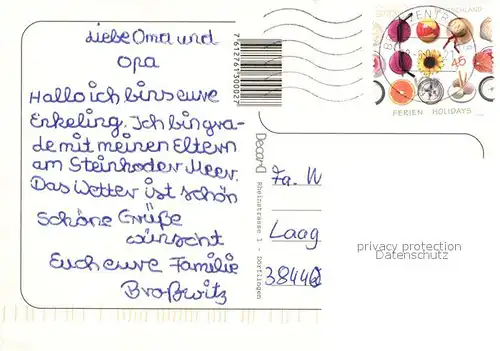 Liebe Oma und
Opa
Hallo ich bins eure
Enkeling. Ich bin gra-
de mit meinen Eltern
am Steinhoder Meer.
Das Wetter ist schön
Schöne Grüße
wünscht
Euch eure Familie
Broßwitz
7612781300027
Decard
Rheinstrasse 1 - Döttlingen
DEUTSCHLAND
45
FERIEN HOLIDAYS
Fa. W
Laag
38446
privacy protection
Datenschutz